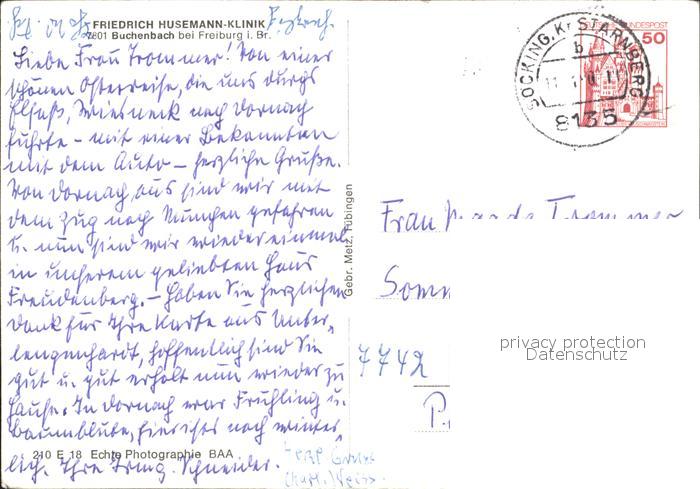 FRIEDRICH HUSEMANN-KLINIK
7801 Buchenbach bei Freiburg i. Br.
Liebe Frau Trommer! Von einer
schönen Osterreise, die uns durchs
Elsaß, Wiesneck nach Dornach
führte - mit einer Bekannten
mit dem Auto - herzliche Grüße.
Von Dornach aus sind wir mit
dem Zug nach München gefahren
u. nun sind wir wieder einmal
in unserem geliebten Haus
Freudenberg. - Haben Sie herzlichen
Dank für Ihre Karte aus Unter-
lengenhardt, hoffentlich sind Sie
gut u. gut erholt nun wieder zu
Hause. In Dornach war Frühling u.
Baumblüte, hier ists noch winter-
lich. Ihre Irmg. Schneider.
210 E 18 Echte Photographie BAA
Gebr. Metz, Tübingen
DEUTSCHE BUNDESPOST
50
SOCKING, Kr STARNBERG
b
8135
Frau Trommer
7742
privacy protection
Datenschutz